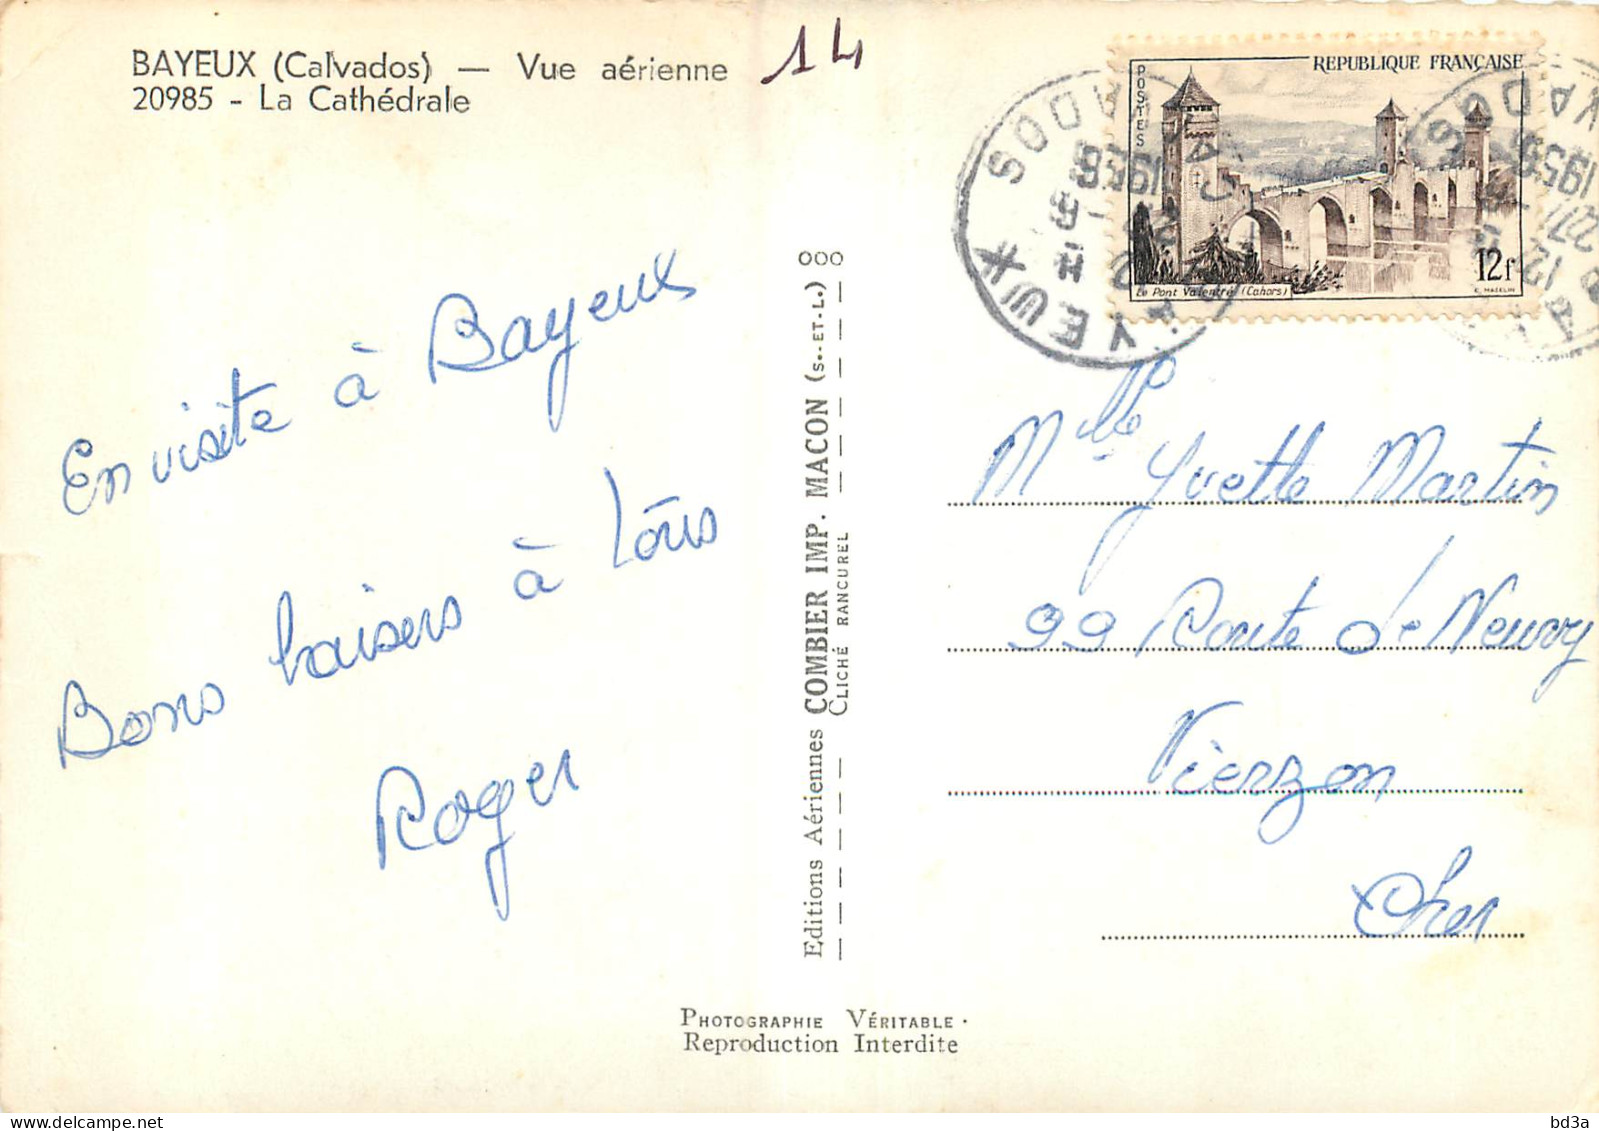 BAYEUX (Calvados) — Vue aérienne
20985 - La Cathédrale
14
En visite à Bayeux
Bons baisers à tous
Roger
Editions Aériennes COMBIER IMP. MACON (S.-ET-L.) OOO
CLICHÉ RANCUREL
PHOTOGRAPHIE VÉRITABLE .
Reproduction Interdite
REPUBLIQUE FRANÇAISE
POSTES
12f
Le Pont Valentré (Cahors)
C. MAZELIN
BAYEUX * CALVADOS
1956
Mlle Yvette Martin
99 Route de Neuvy
Vierzon
Cher
bd3a